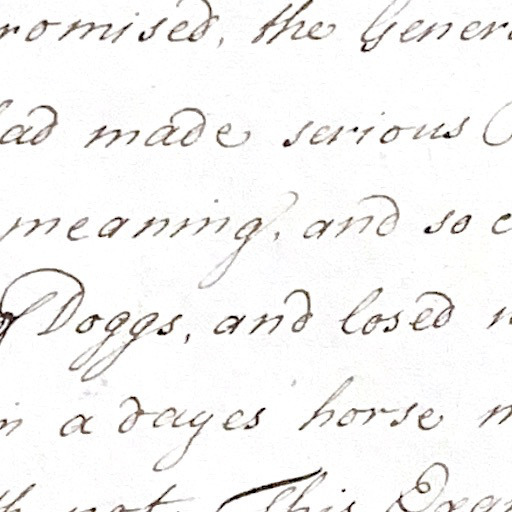 romised, the Gener
had made serious
meaning, and so
of Doggs, and losed
in a dayes horse
not. This